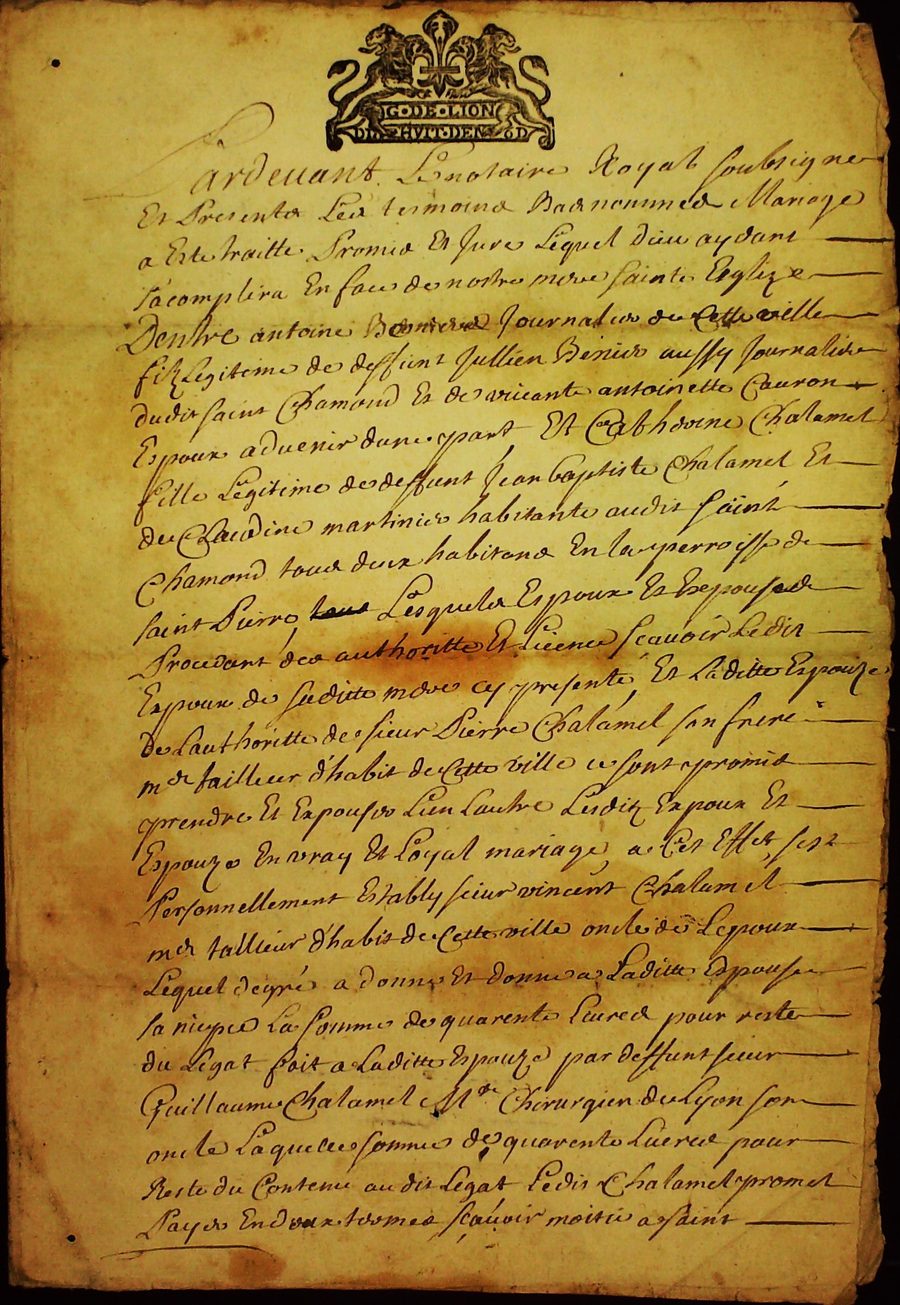 G DE LION
HUIT DEN
Pardevant Le notaire Royal soubsigne
Et Presents Les tesmoins Bas nommes Mariage
a Este traitte Promis Et Jure Lequel dieu aydant
sacomplira En face de nostre mere sainte Esglize
Dentre antoine Journalier de Cette ville
filz Legitime de deffunt Jullien Benier aussy Journalier
dudit saint Chamond Et de vivante antoinette Cauron
Espoux advenir dune part Et Catherine Chalamel
fille Legitime de deffunt Jean baptiste Chalamel Et
de Claudine martinier habitante audit saint
Chamond tous deux habitans En la perroisse de
saint Pierre Lesquels Espoux Et Espouse
Procedant des authoritte Et Licence scavoir Ledit
Espoux de saditte mere cy presente Et Laditte Espouze
de Lauthoritte de sieur Pierre Chalamel son frere
md tailleur d'habit de Cette ville ce sont promis
prendre Et Espouser Lun Lautre Lesditz Espoux Et
Espouze En vray Et Loyal mariage a Cet Effet sest
Personnellement Estably sieur vincent Chalamel
md tallieur d'habit de Cette ville oncle de Lepoux
Lequel degré a donne Et donne a Laditte Espouse
sa niepce La somme de quarente Livres pour reste
du Legat fait a Laditte Espouze par deffunt sieur
Guillaume Chalamel Mtre Chirurgien de Lyon son
oncle Laquelle somme de quarente Livres pour
Reste du Contenu audit Legat Ledit Chalamel promet
Payer En deux termes sçavoir moitie a saint